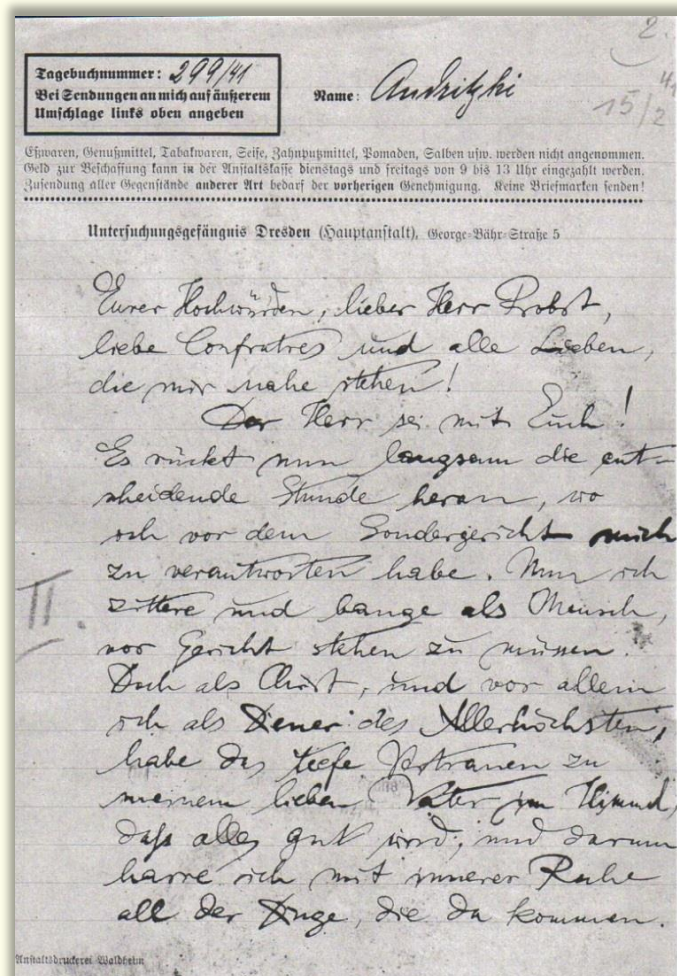 2.
Tagebuchnummer: 299/41
Bei Sendungen an mich auf äußerem
Umschlage links oben angeben
Name: Andritzki
41
15/2
Eßwaren, Genußmittel, Tabakwaren, Seife, Zahnputzmittel, Pomaden, Salben usw. werden nicht angenommen.
Geld zur Beschaffung kann in der Anstaltskasse dienstags und freitags von 9 bis 13 Uhr eingezahlt werden.
Zusendung aller Gegenstände anderer Art bedarf der vorherigen Genehmigung. Keine Briefmarken senden!
Untersuchungsgefängnis Dresden (Hauptanstalt), George-Bähr-Straße 5
Eurer Hochwürden, lieber Herr Probst,
liebe Confratres und alle Lieben,
die mir nahe stehen!
Der Herr sei mit Euch!
Es rückt nun langsam die ent-
scheidende Stunde heran, wo
ich vor dem Sondergericht mich
zu verantworten habe. Nun ich
zittere und bange als Mensch,
vor Gericht stehen zu müssen.
Doch als Christ, und vor allem
ich als Diener des Allerhöchsten,
habe das tiefe Vertrauen zu
meinem lieben Vater im Himmel,
daß alles gut wird; und darum
harre ich mit innerer Ruhe
all der Dinge, die da kommen.
II.
Anstaltsdruckerei Waldheim